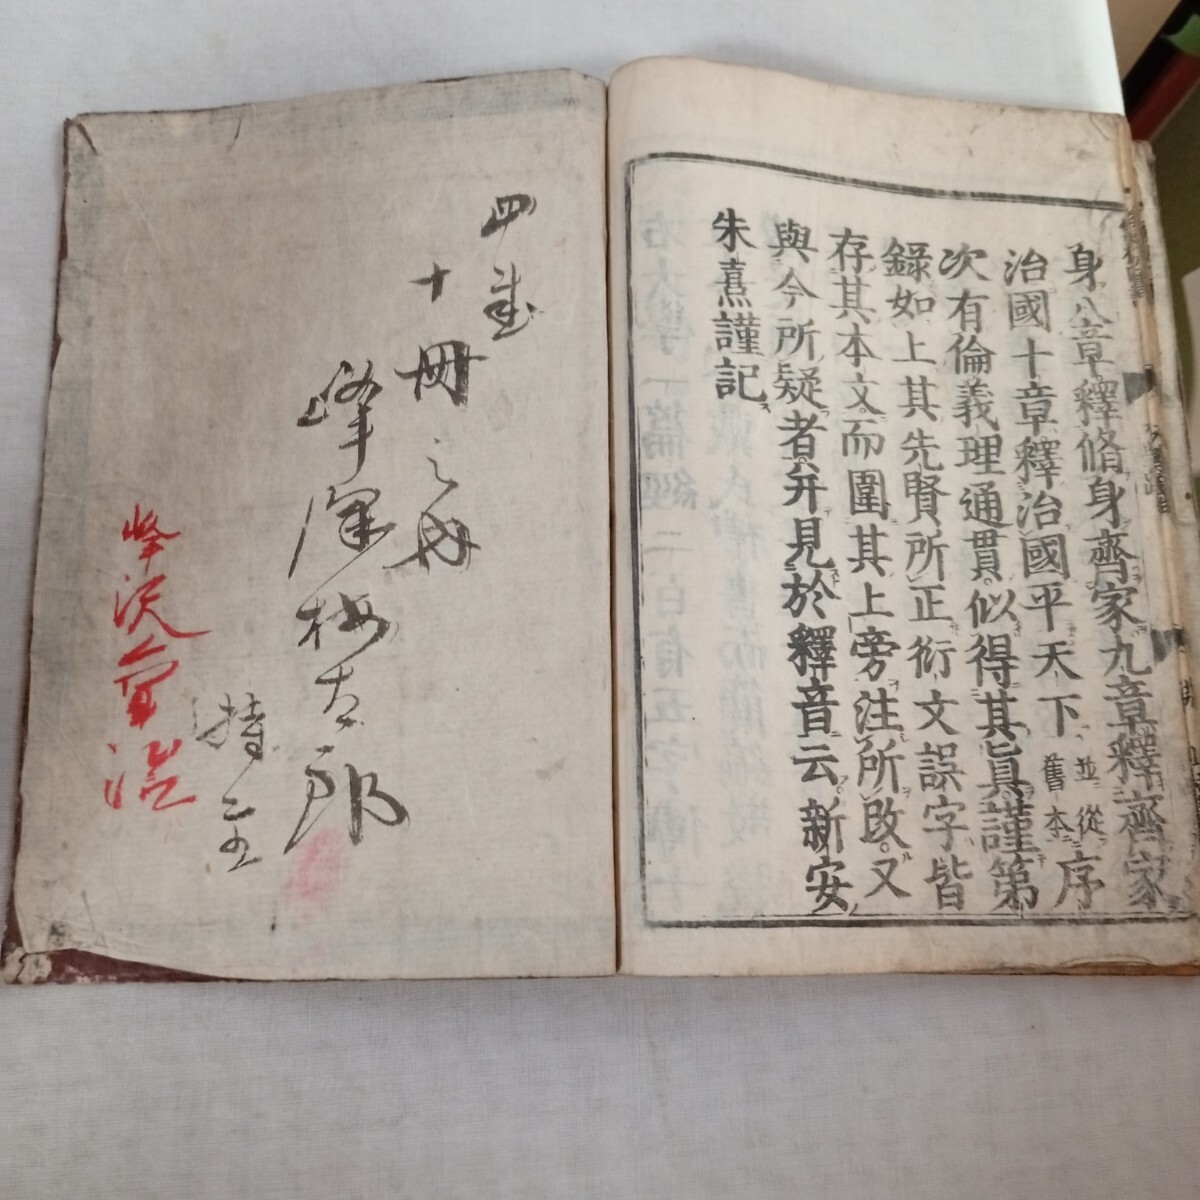 身八章釋脩身齊家九章釋齊家
治國十章釋治國平天下並從舊本序
次有倫義理通貫似得其眞謹第
錄如上其先賢所正衍文誤字皆
存其本文而圍其上旁注所改又
與今所疑者并見於釋音云新安
朱熹謹記
十冊之内
峯澤梅太郎
持主